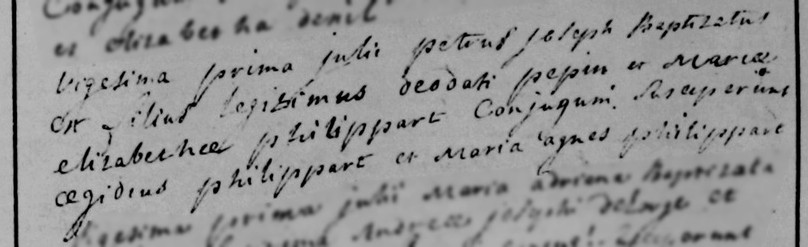 Conjugum
et Elizabetha denil
vigesima prima julii petrus joseph Baptizatus
est filius legitimus deodati pepin et Mariæ
elizabethæ philippart Conjugum. Susceperunt
ægidius philippart et Maria agnes philippart
vigesima prima julii Maria adriena Baptizata
Andreæ josephi delarge et